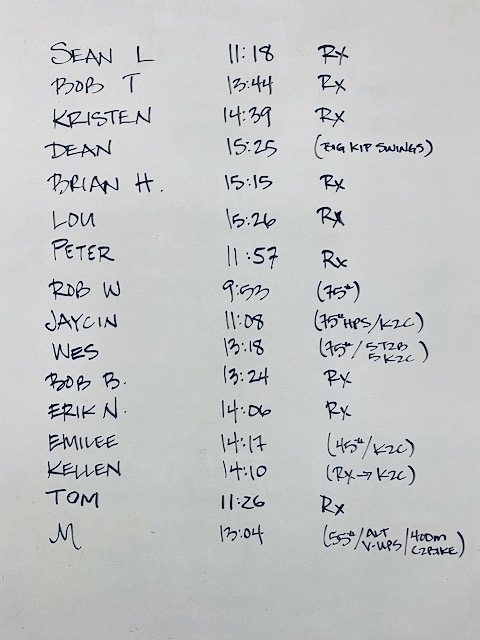 SEAN L 11:18 Rx
BOB T 13:44 Rx
KRISTEN 14:39 Rx
DEAN 15:25 (BIG KIP SWINGS)
BRIAN H. 15:15 Rx
LOU 15:26 Rx
PETER 11:57 Rx
ROB W 9:53 (75#)
JAYCIN 11:08 (75# HPS/K2C)
WES 13:18 (75#/5T2B 5K2C)
BOB B. 13:24 Rx
ERIK N. 14:06 Rx
EMILEE 14:17 (45#/K2C)
KELLEN 14:10 (RX→K2C)
TOM 11:26 Rx
M 13:04 (55#/ALT V-UPS/400m BIKE)